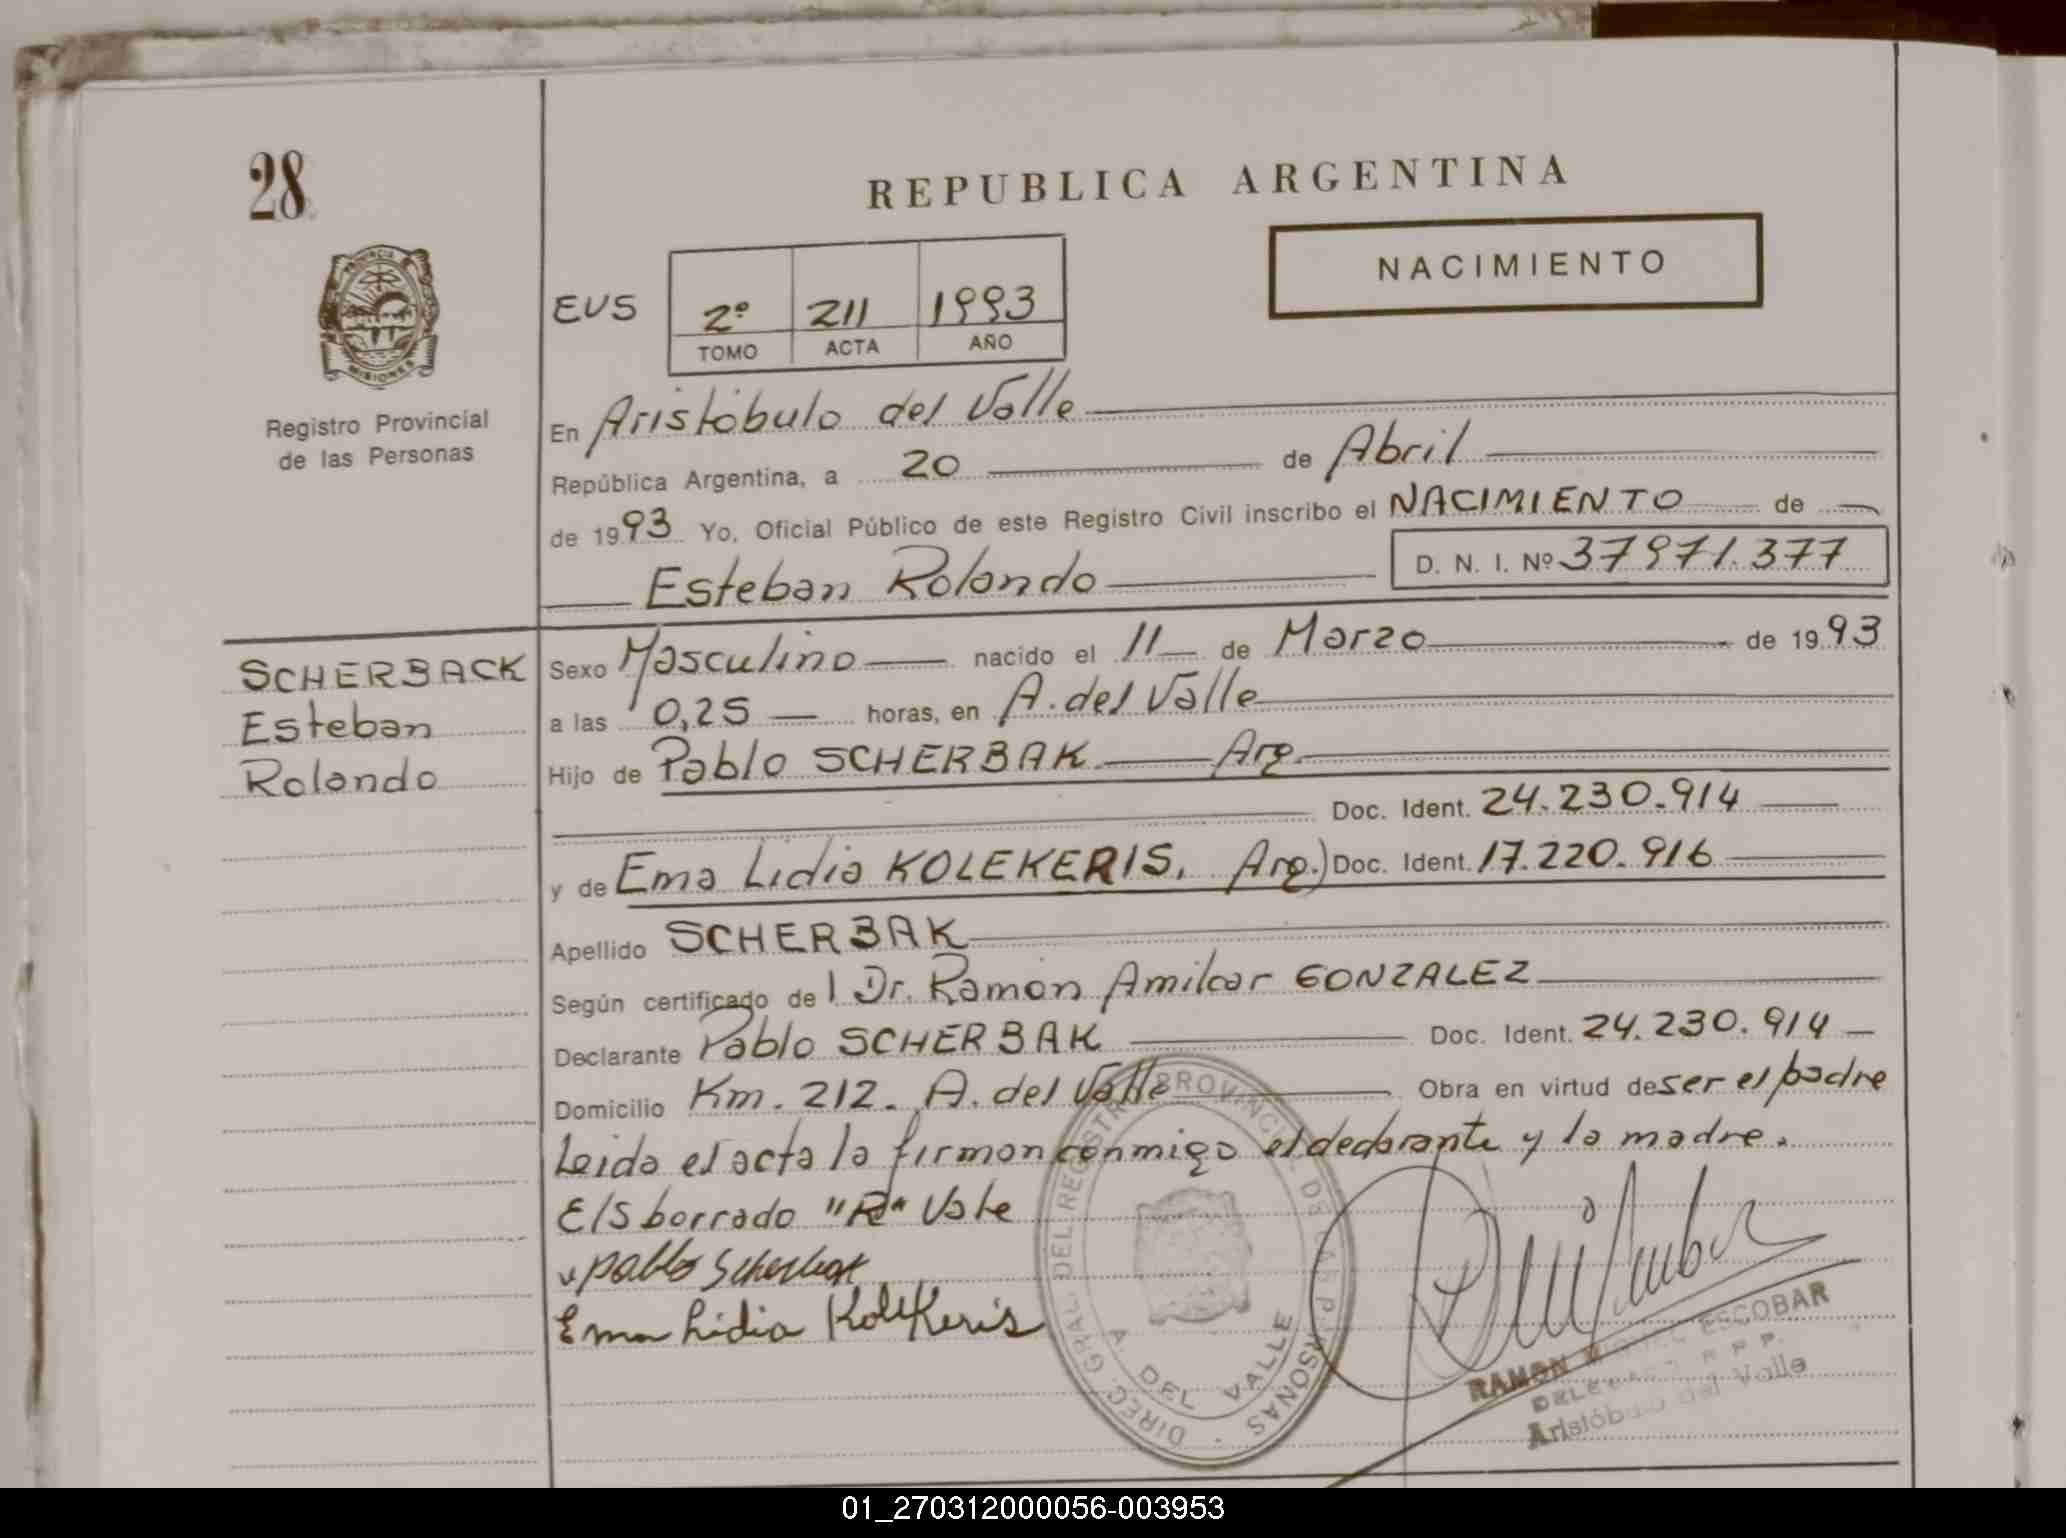 28
REPUBLICA ARGENTINA
NACIMIENTO
PROVINCIA DE MISIONES
Registro Provincial
de las Personas
EVS
2º 211 1993
TOMO ACTA AÑO
En Aristóbulo del Valle
República Argentina, a 20 de Abril
de 1993 Yo, Oficial Público de este Registro Civil inscribo el NACIMIENTO de
Esteban Rolando D. N. I. Nº 37971.377
SCHERBACK
Esteban
Rolando
Sexo Masculino nacido el 11 de Marzo de 1993
a las 0,25 horas, en A. del Valle
Hijo de Pablo SCHERBAK Arg.
Doc. Ident. 24.230.914
y de Ema Lidia KOLEKERIS. Arg.) Doc. Ident. 17.220.916
Apellido SCHERBAK
Según certificado del Dr. Ramón Amilcar GONZALEZ
Declarante Pablo SCHERBAK Doc. Ident. 24.230.914
Domicilio Km. 212. A. del Valle Obra en virtud de ser el padre
Leida el acta la firman conmigo el declarante y la madre.
E/S borrado "R" Vale
Pablo Scherbak
Ema Lidia Kolekeris
DIREC. GRAL. DEL REGISTRO PROVINCIAL DE LAS PERSONAS
A. DEL VALLE
RAMON MIGUEL ESCOBAR
R.P.P.
Aristóbulo del Valle
01_270312000056-003953